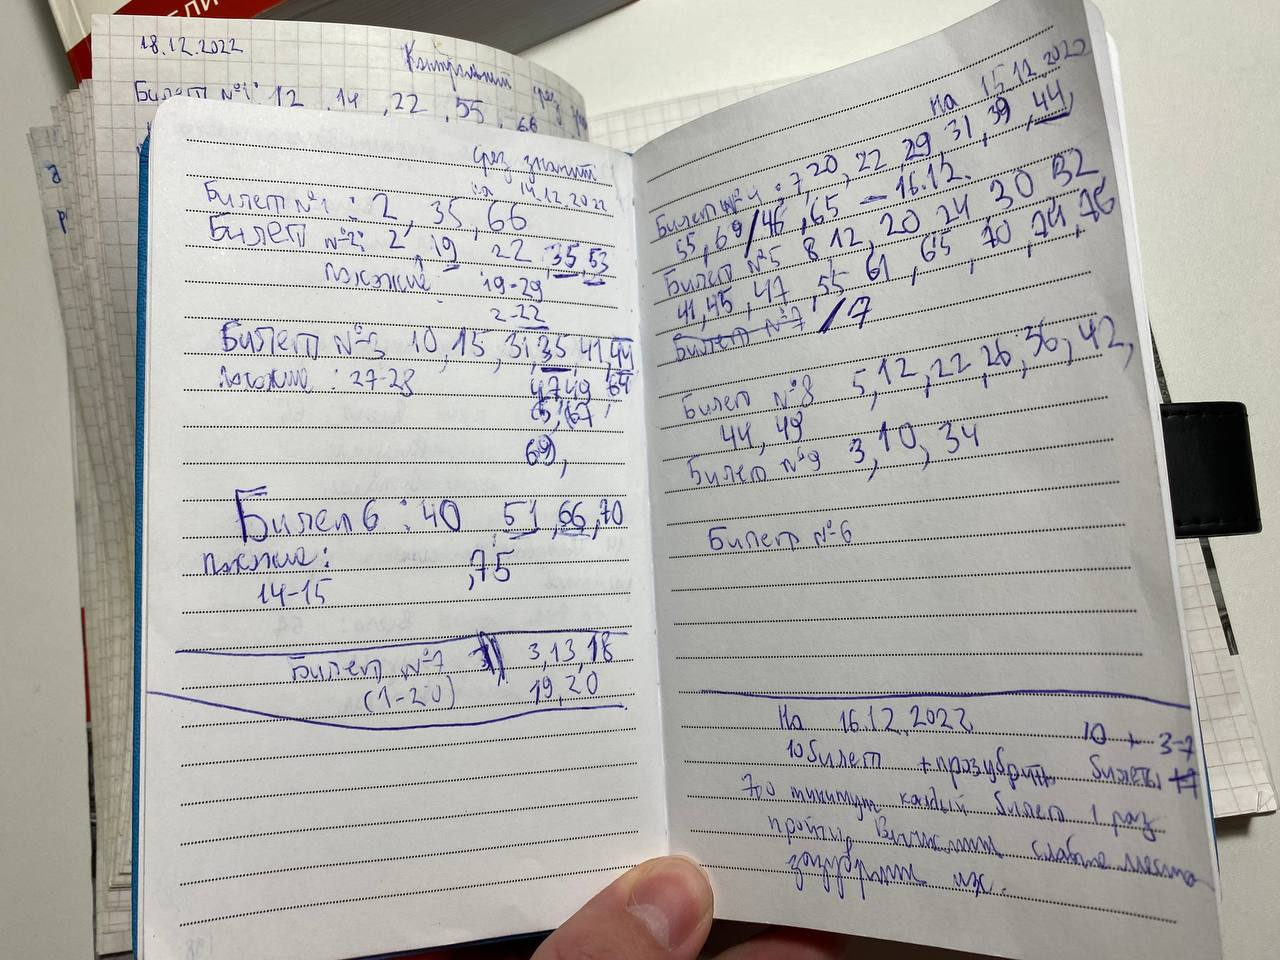 ЛИ
18.12.2022
Контрольный срез
Билет №1: 12, 14, 22, 55, 66
срез знаний
на 14.12.2022
Билет №1: 2, 35, 66
Билет №2: 2, 19 22, 35, 53
похожие: 19-29
2-22
Билет №3 10, 15, 31, 35, 41, 44
похожие: 27-28 47, 49, 64
65, 67,
69,
Билет 6: 40, 51, 66, 70
похожие: ,75
14-15
Билет №7 3, 13, 18
(1-20) 19, 20
На 15.12.2022
Билет №4: 7, 20, 22, 29, 31, 39, 44,
55, 69 / 46, 65 - 16.12.
Билет №5 8 12, 20 24, 30 32,
41, 45, 47, 55 61, 65, 70, 74, 76
Билет №7 / 7
Билет №8 5, 12, 22, 26, 36, 42,
44, 49
Билет №9 3, 10, 34
Билет №6
На 16.12.2022 10 + 3-7
10 билет + прозубрить билеты
минимум каждый билет 1 раз
пройти, Вычислить слабые места
зазубрить их.